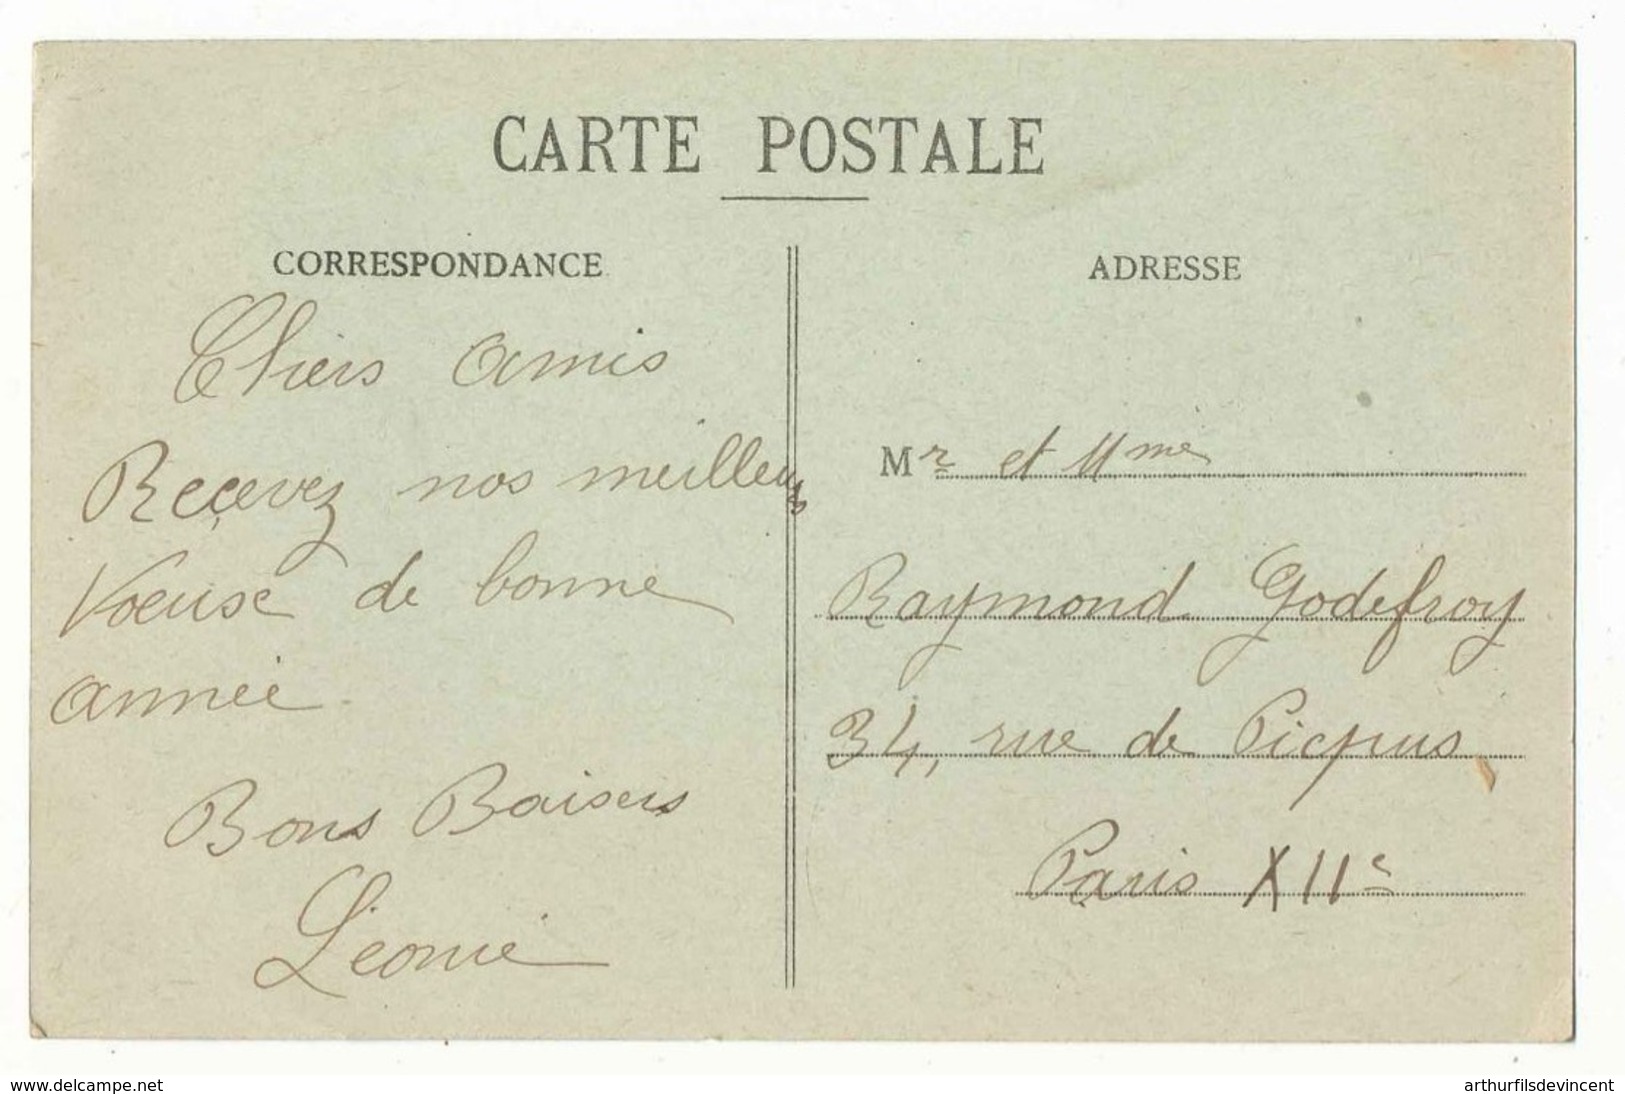 CARTE POSTALE
CORRESPONDANCE
Chers amis
Reçevez nos meilleurs
Voeuse de bonne
année
Bons Baisers
Léonie
ADRESSE
Mr et Mme
Raymond Godefroy
34, rue de Picpus
Paris XIIe
www.delcampe.net
arthurfilsdevincent